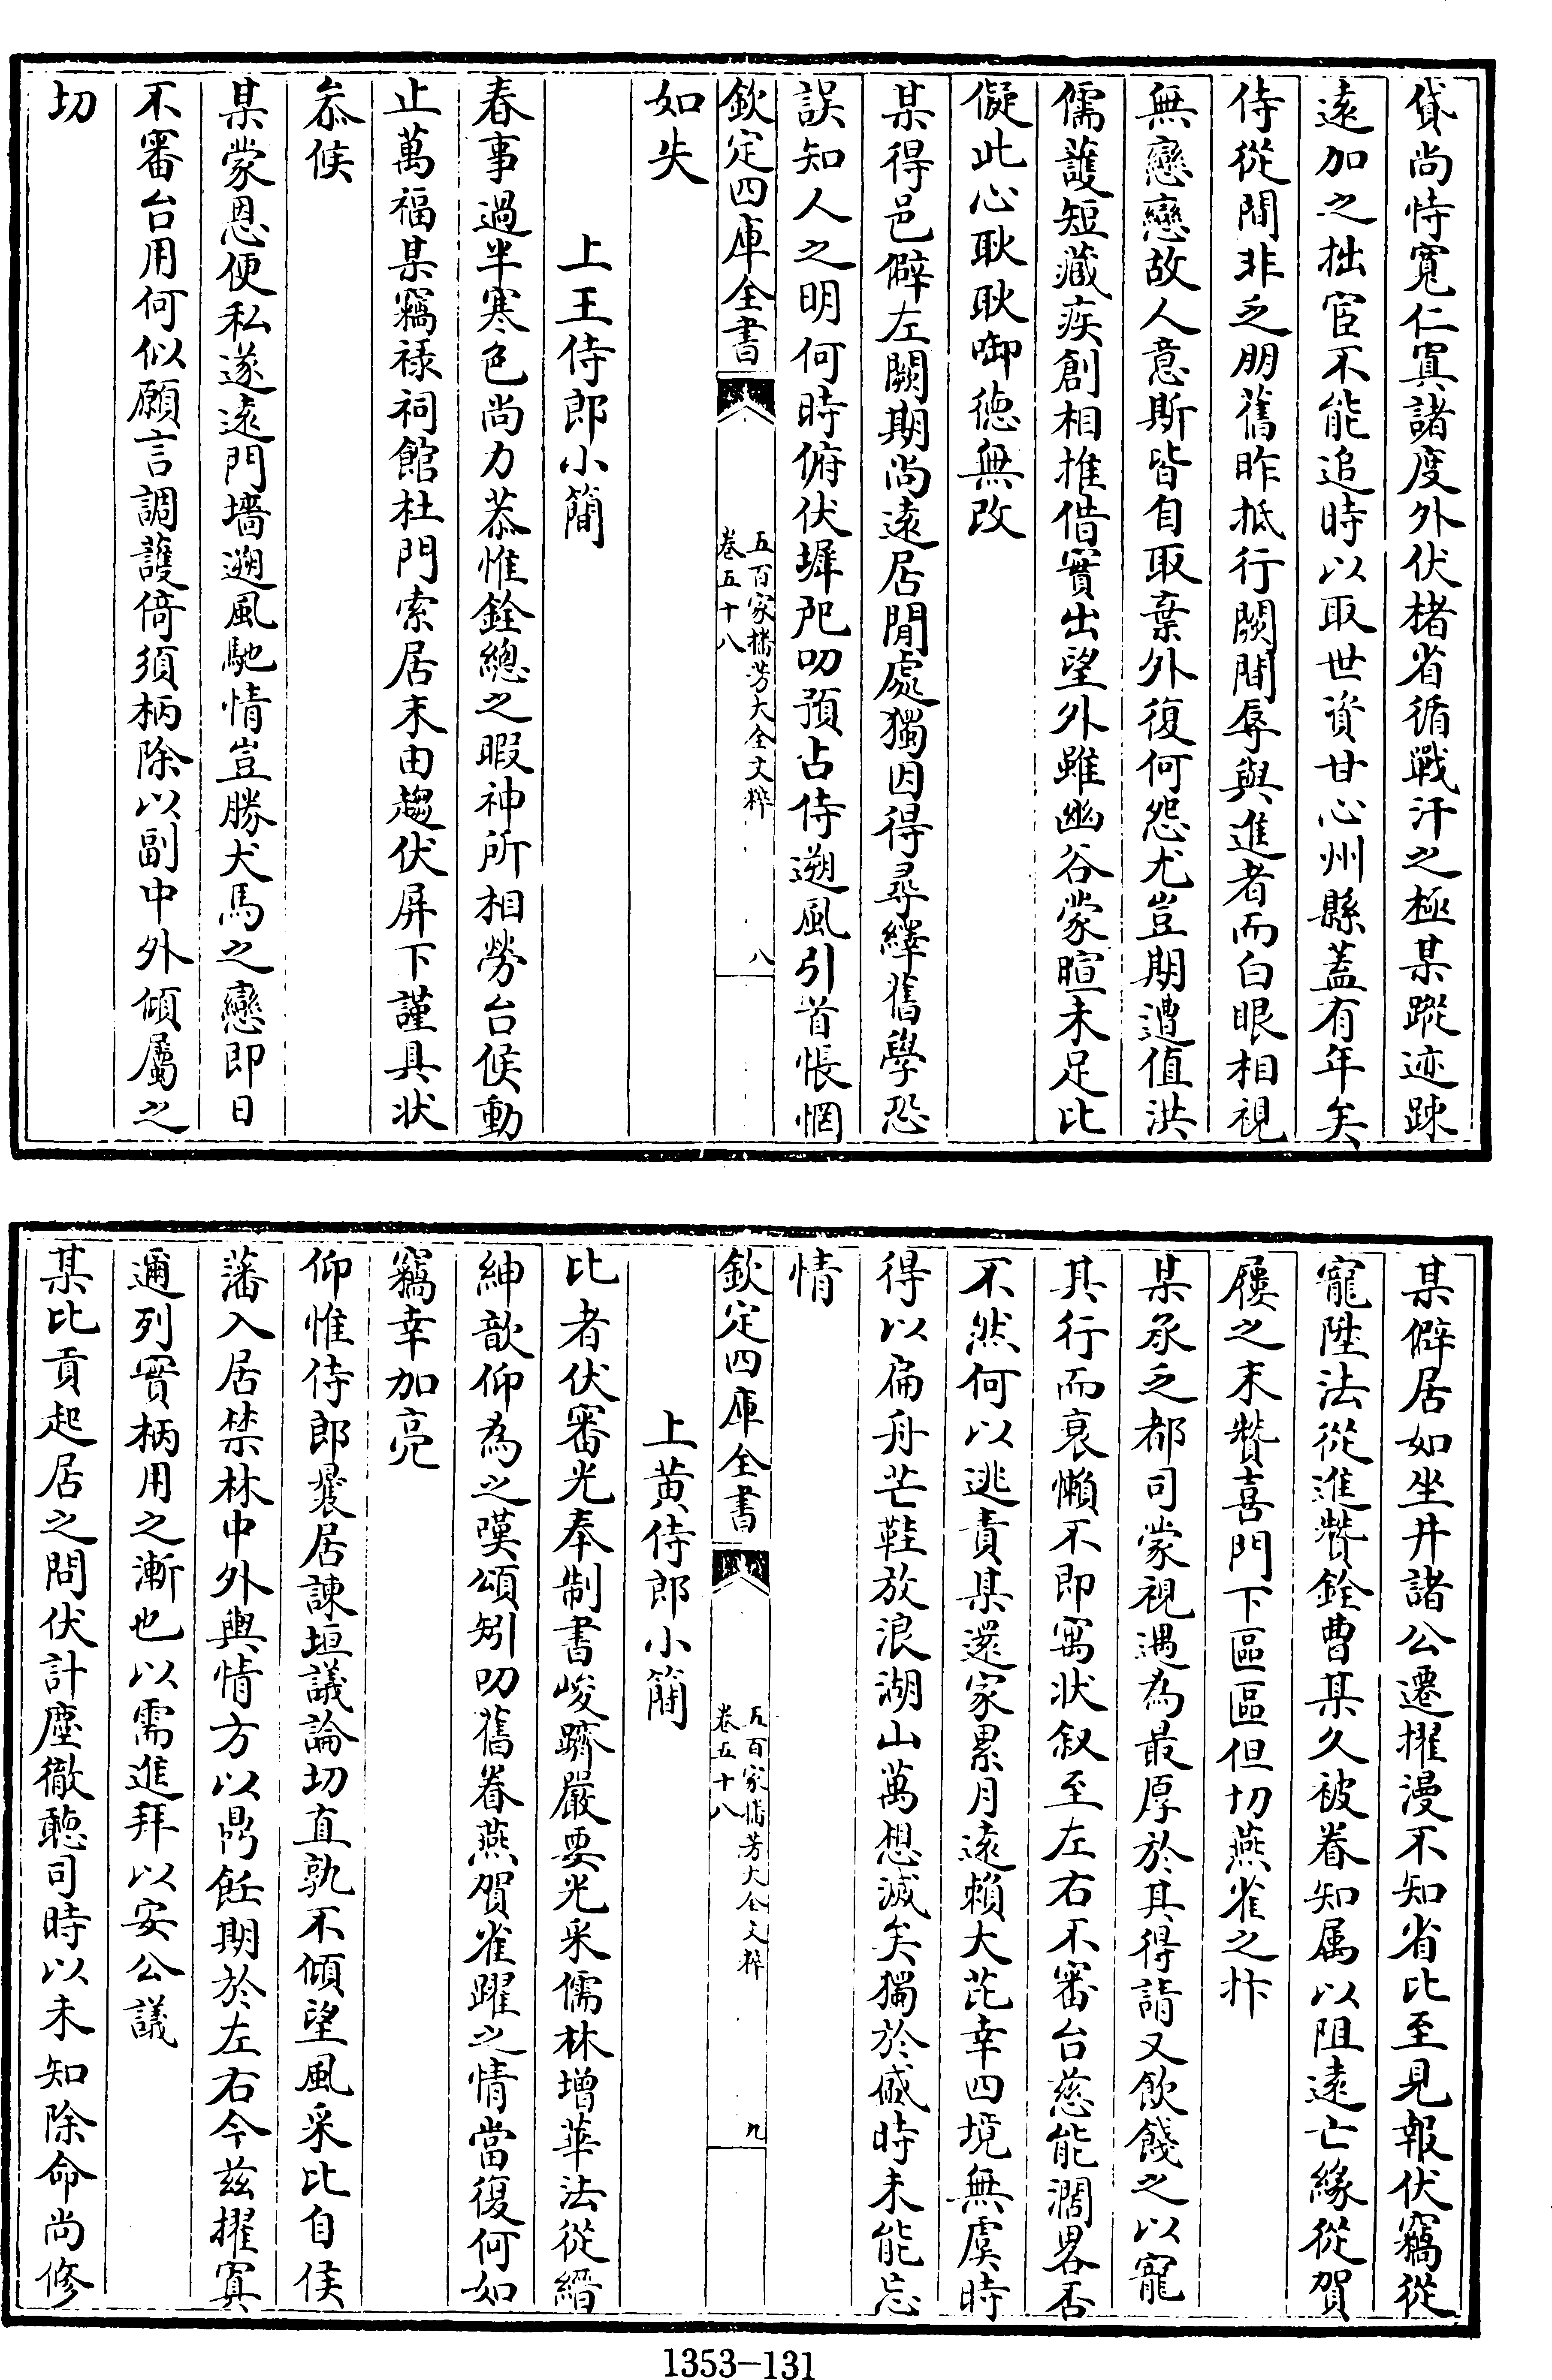 貸尚恃寛仁寘諸度外伏楮省循戰汗之極某蹤迹踈
逺加之拙宦不能追時以取世資甘心州縣蓋有年矣
侍從間非乏朋舊昨抵行闕間辱與進者而白眼相視
無戀戀故人意斯皆自取棄外復何怨尤豈期遭值洪
儒䕶短藏疾創相推借實出望外雖幽谷蒙暄未足比
儗此心耿耿啣徳無改
某得邑僻左闕期尚逺居閒處獨因得尋繹舊學恐
誤知人之明何時俯伏墀戺叨預占侍遡風引首悵惘
欽定四庫全書
五百家播芳大全文粹
卷五十八
八
如失
上王侍郎小簡
春事過半寒色尚力恭惟銓總之暇神所相勞台候動
止萬福某竊禄祠館杜門索居末由趨伏屏下謹具状
叅候
某蒙恩便私遂逺門墻遡風馳情豈勝犬馬之戀即日
不審台用何似願言調䕶倚須柄除以副中外傾屬之
切
某僻居如坐井諸公遷擢漫不知省比至見報伏竊從
寵陞法從進贊銓曹某久被眷知属以阻逺亡緣從賀
屨之末贊喜門下區區但切燕雀之抃
某承乏都司蒙視遇為最厚於其得請又飲餞之以寵
其行而衰懶不即寓状叙至左右不審台慈能濶畧否
不然何以逃責某還家累月逺賴大芘幸四境無虞時
得以扁舟芒鞋放浪湖山萬想滅矣獨於戚時未能忘
情
欽定四庫全書
五百家播芳大全文粹
卷五十八
九
上黄侍郎小簡
比者伏審光奉制書峻躋嚴要光采儒林增華法從縉
紳歆仰為之嘆頌矧叨舊眷燕賀雀躍之情當復何如
竊幸加亮
仰惟侍郎曩居諫垣議論切直孰不傾望風采比自侯
藩入居禁林中外輿情方以鼎飪期於左右今兹擢寘
邇列實柄用之漸也以需進拜以安公議
某比貢起居之問伏計塵徹聴司時以未知除命尚修
1353-131